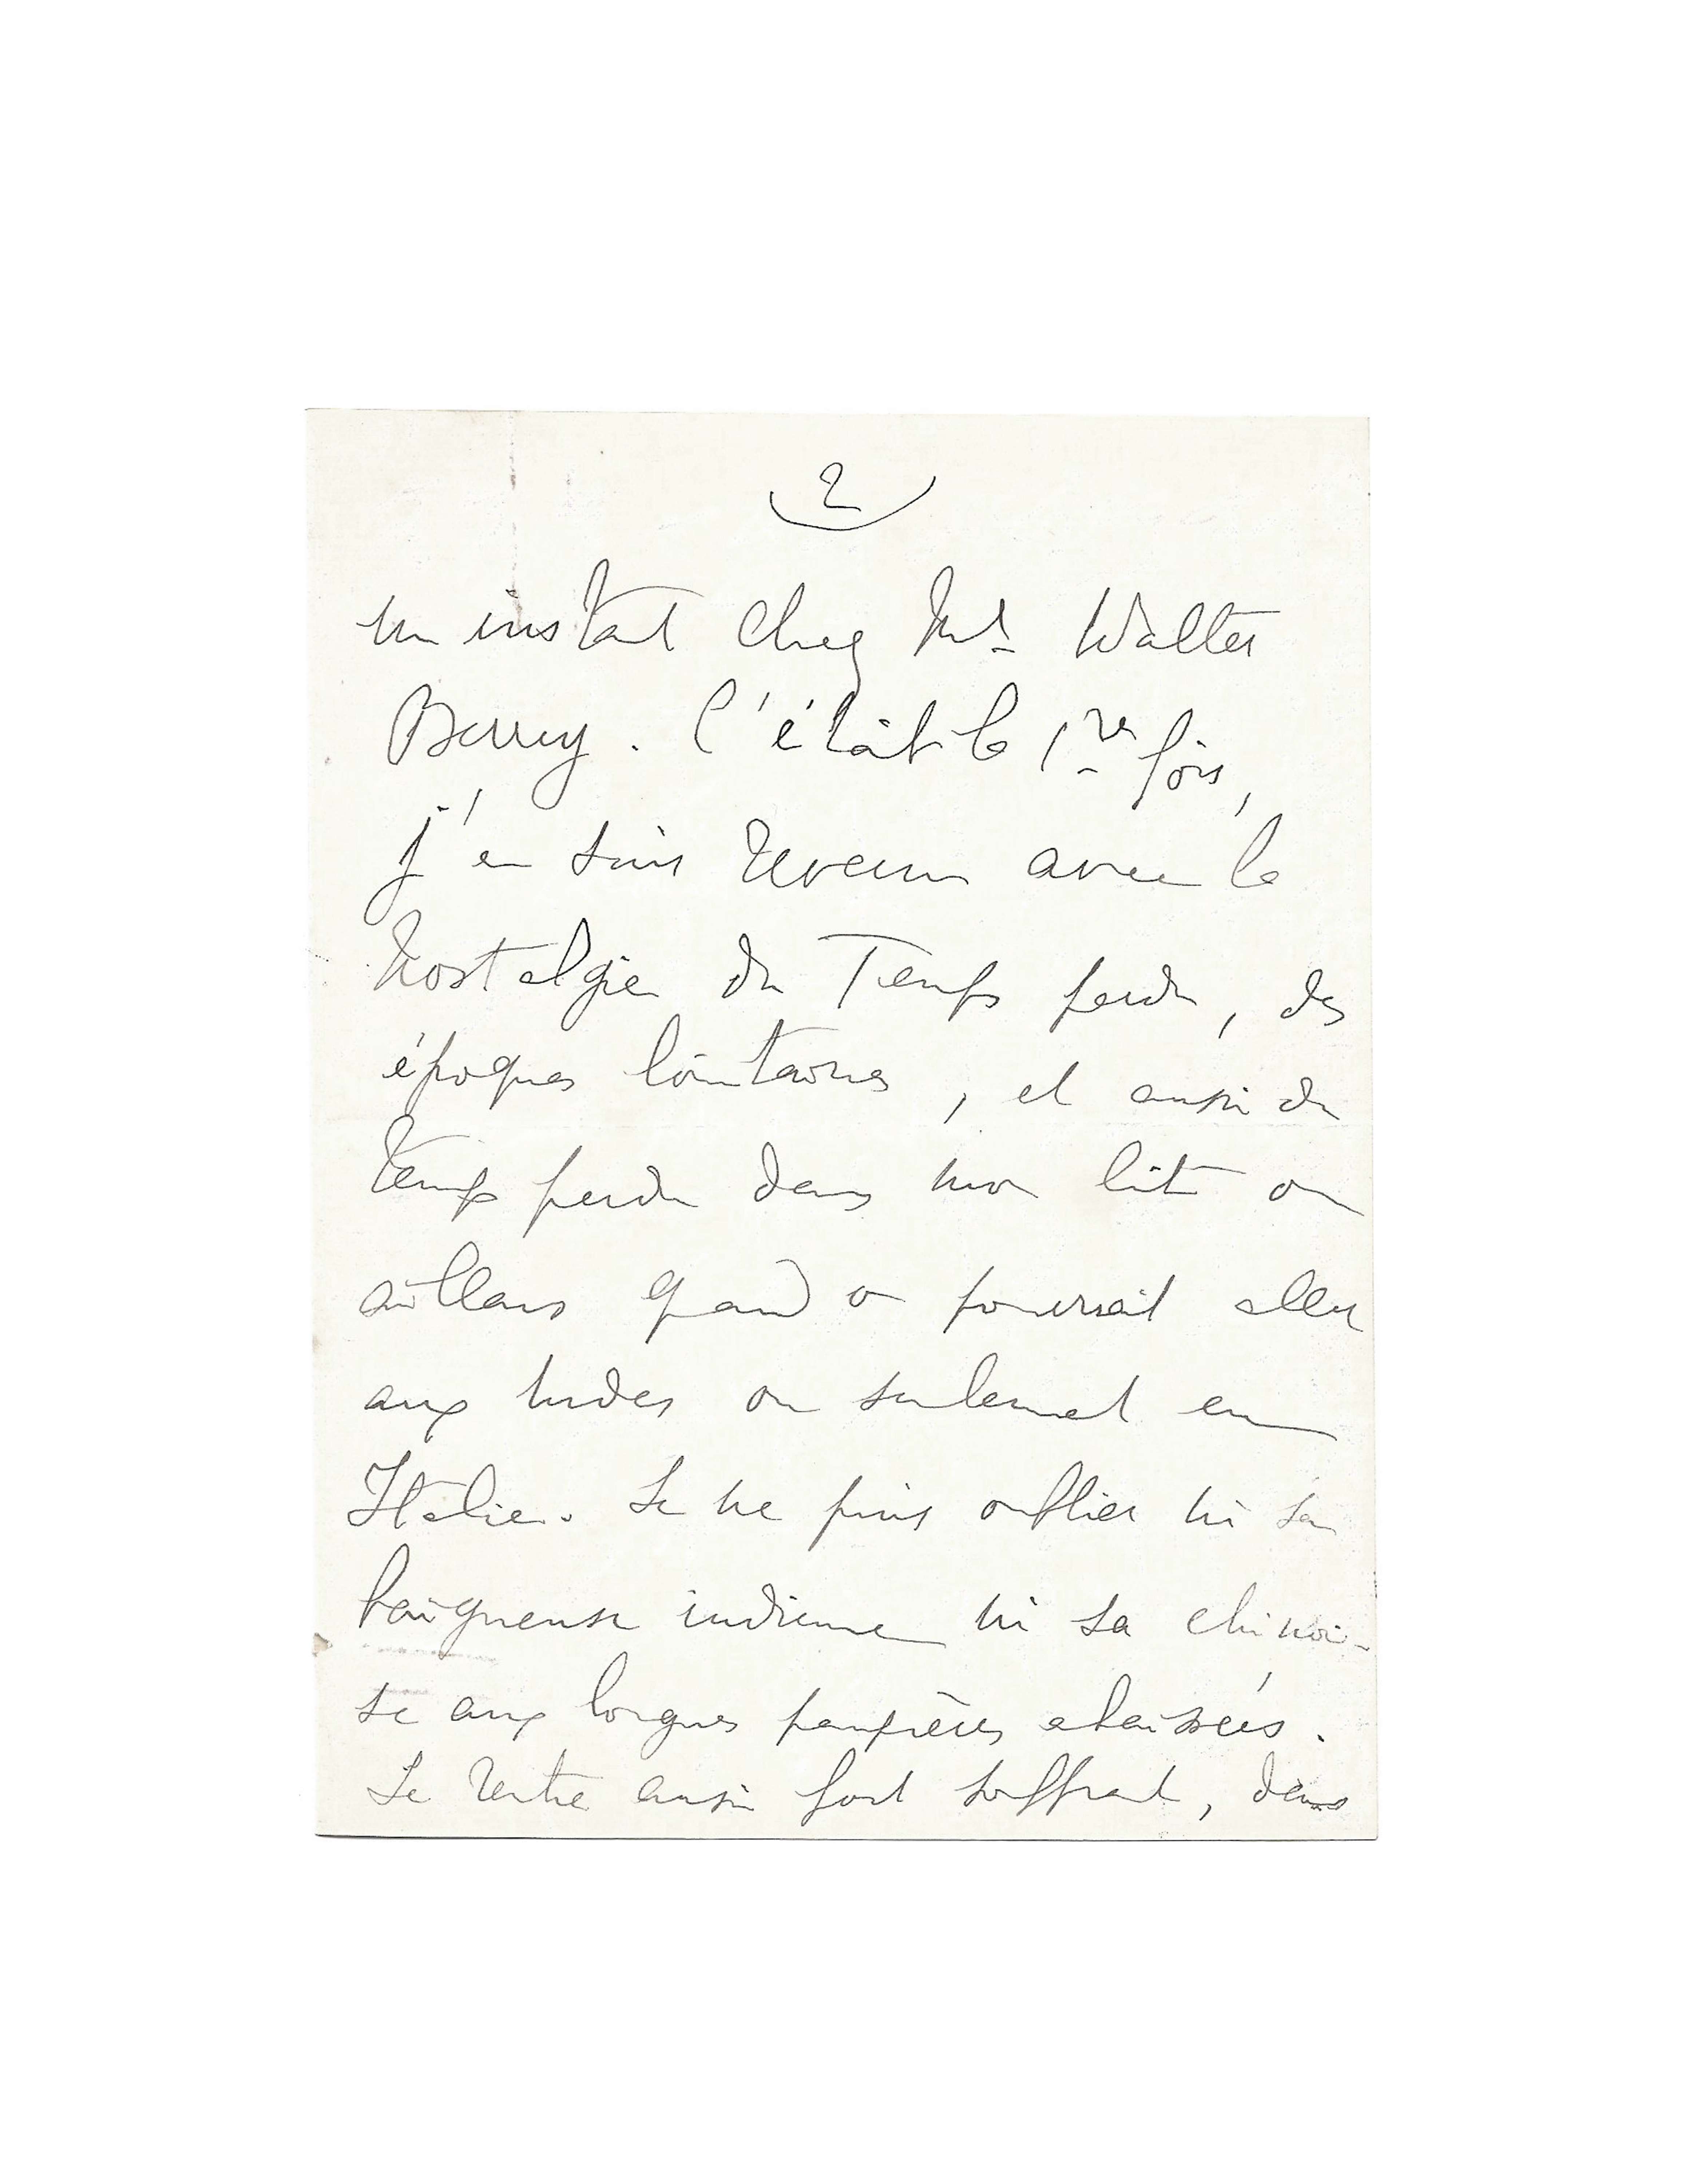 2
un instant chez Mr Walter
Berry. C'était la 1re fois,
j'en suis revenu avec la
nostalgie du Temps perdu, des
époques lointaines, et aussi du
temps perdu dans mon lit ou
ailleurs quand on pourrait aller
aux Indes ou seulement en
Italie. Je ne puis oublier ni sa
baigneuse indienne ni sa chinoi-
se aux longues paupières abaissées.
Je rentre aussi fort souffrant, dans